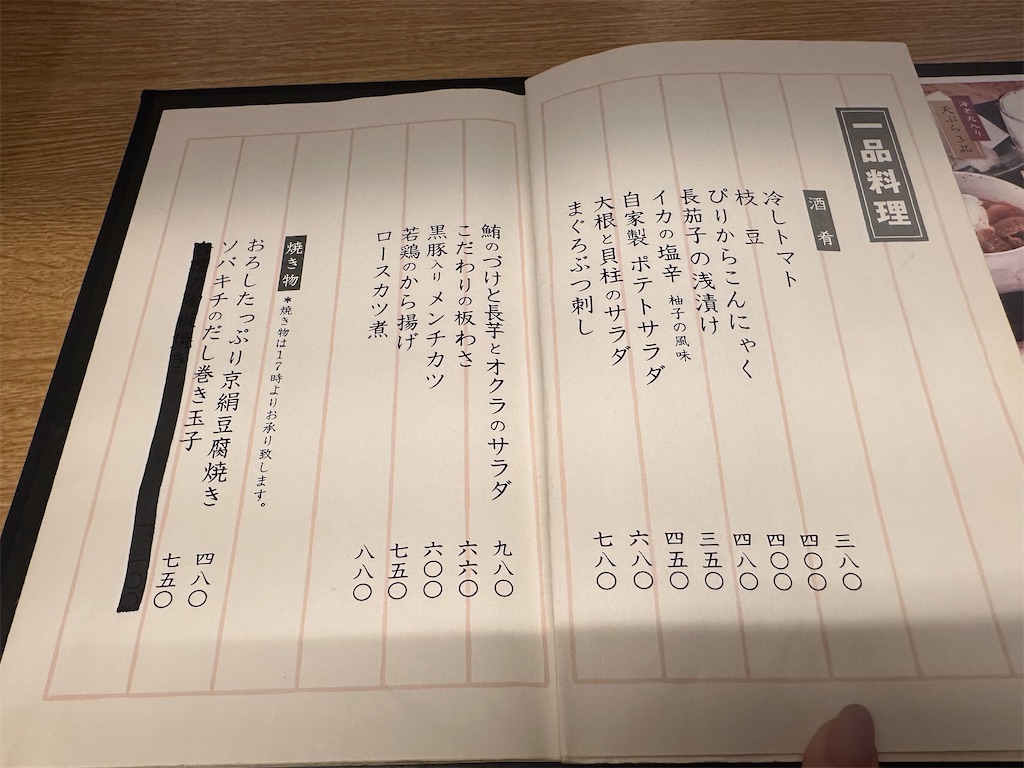 海老天入り
天ぷら3品
一品料理
酒肴
冷しトマト 三八〇
枝豆 四〇〇
ぴりからこんにゃく 四〇〇
長茄子の浅漬け 四八〇
イカの塩辛 柚子の風味 三五〇
自家製 ポテトサラダ 四五〇
大根と貝柱のサラダ 六八〇
まぐろぶつ刺し 七八〇
鮪のづけと長芋とオクラのサラダ 九八〇
こだわりの板わさ 六六〇
黒豚入り メンチカツ 六〇〇
若鶏のから揚げ 七五〇
ロースカツ煮 八八〇
焼き物 *焼き物は17時よりお承り致します。
おろしたっぷり京絹豆腐焼き 四八〇
ソバキチのだし巻き玉子 七五〇